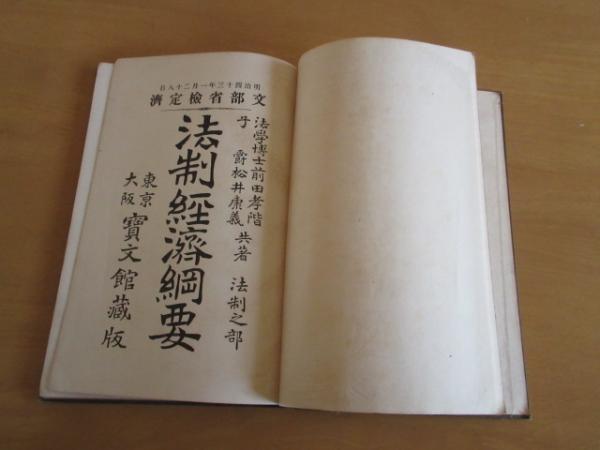 明治四十三年一月二十八日
文部省檢定濟
法學博士前田孝階
子爵松井康義 共著 法制之部
法制經濟綱要
東京
大阪 寶文館藏版